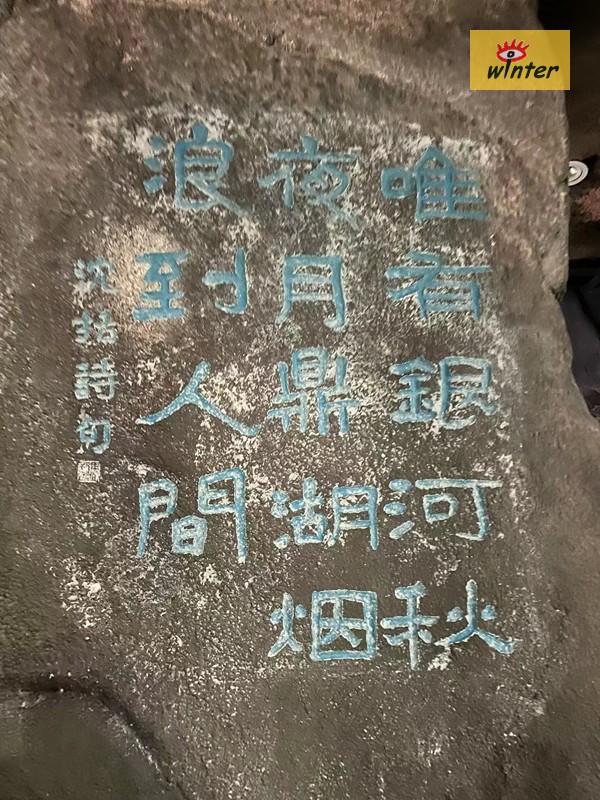 唯有銀河秋
夜月鼎湖烟
浪到人間
沈括詩句
winter